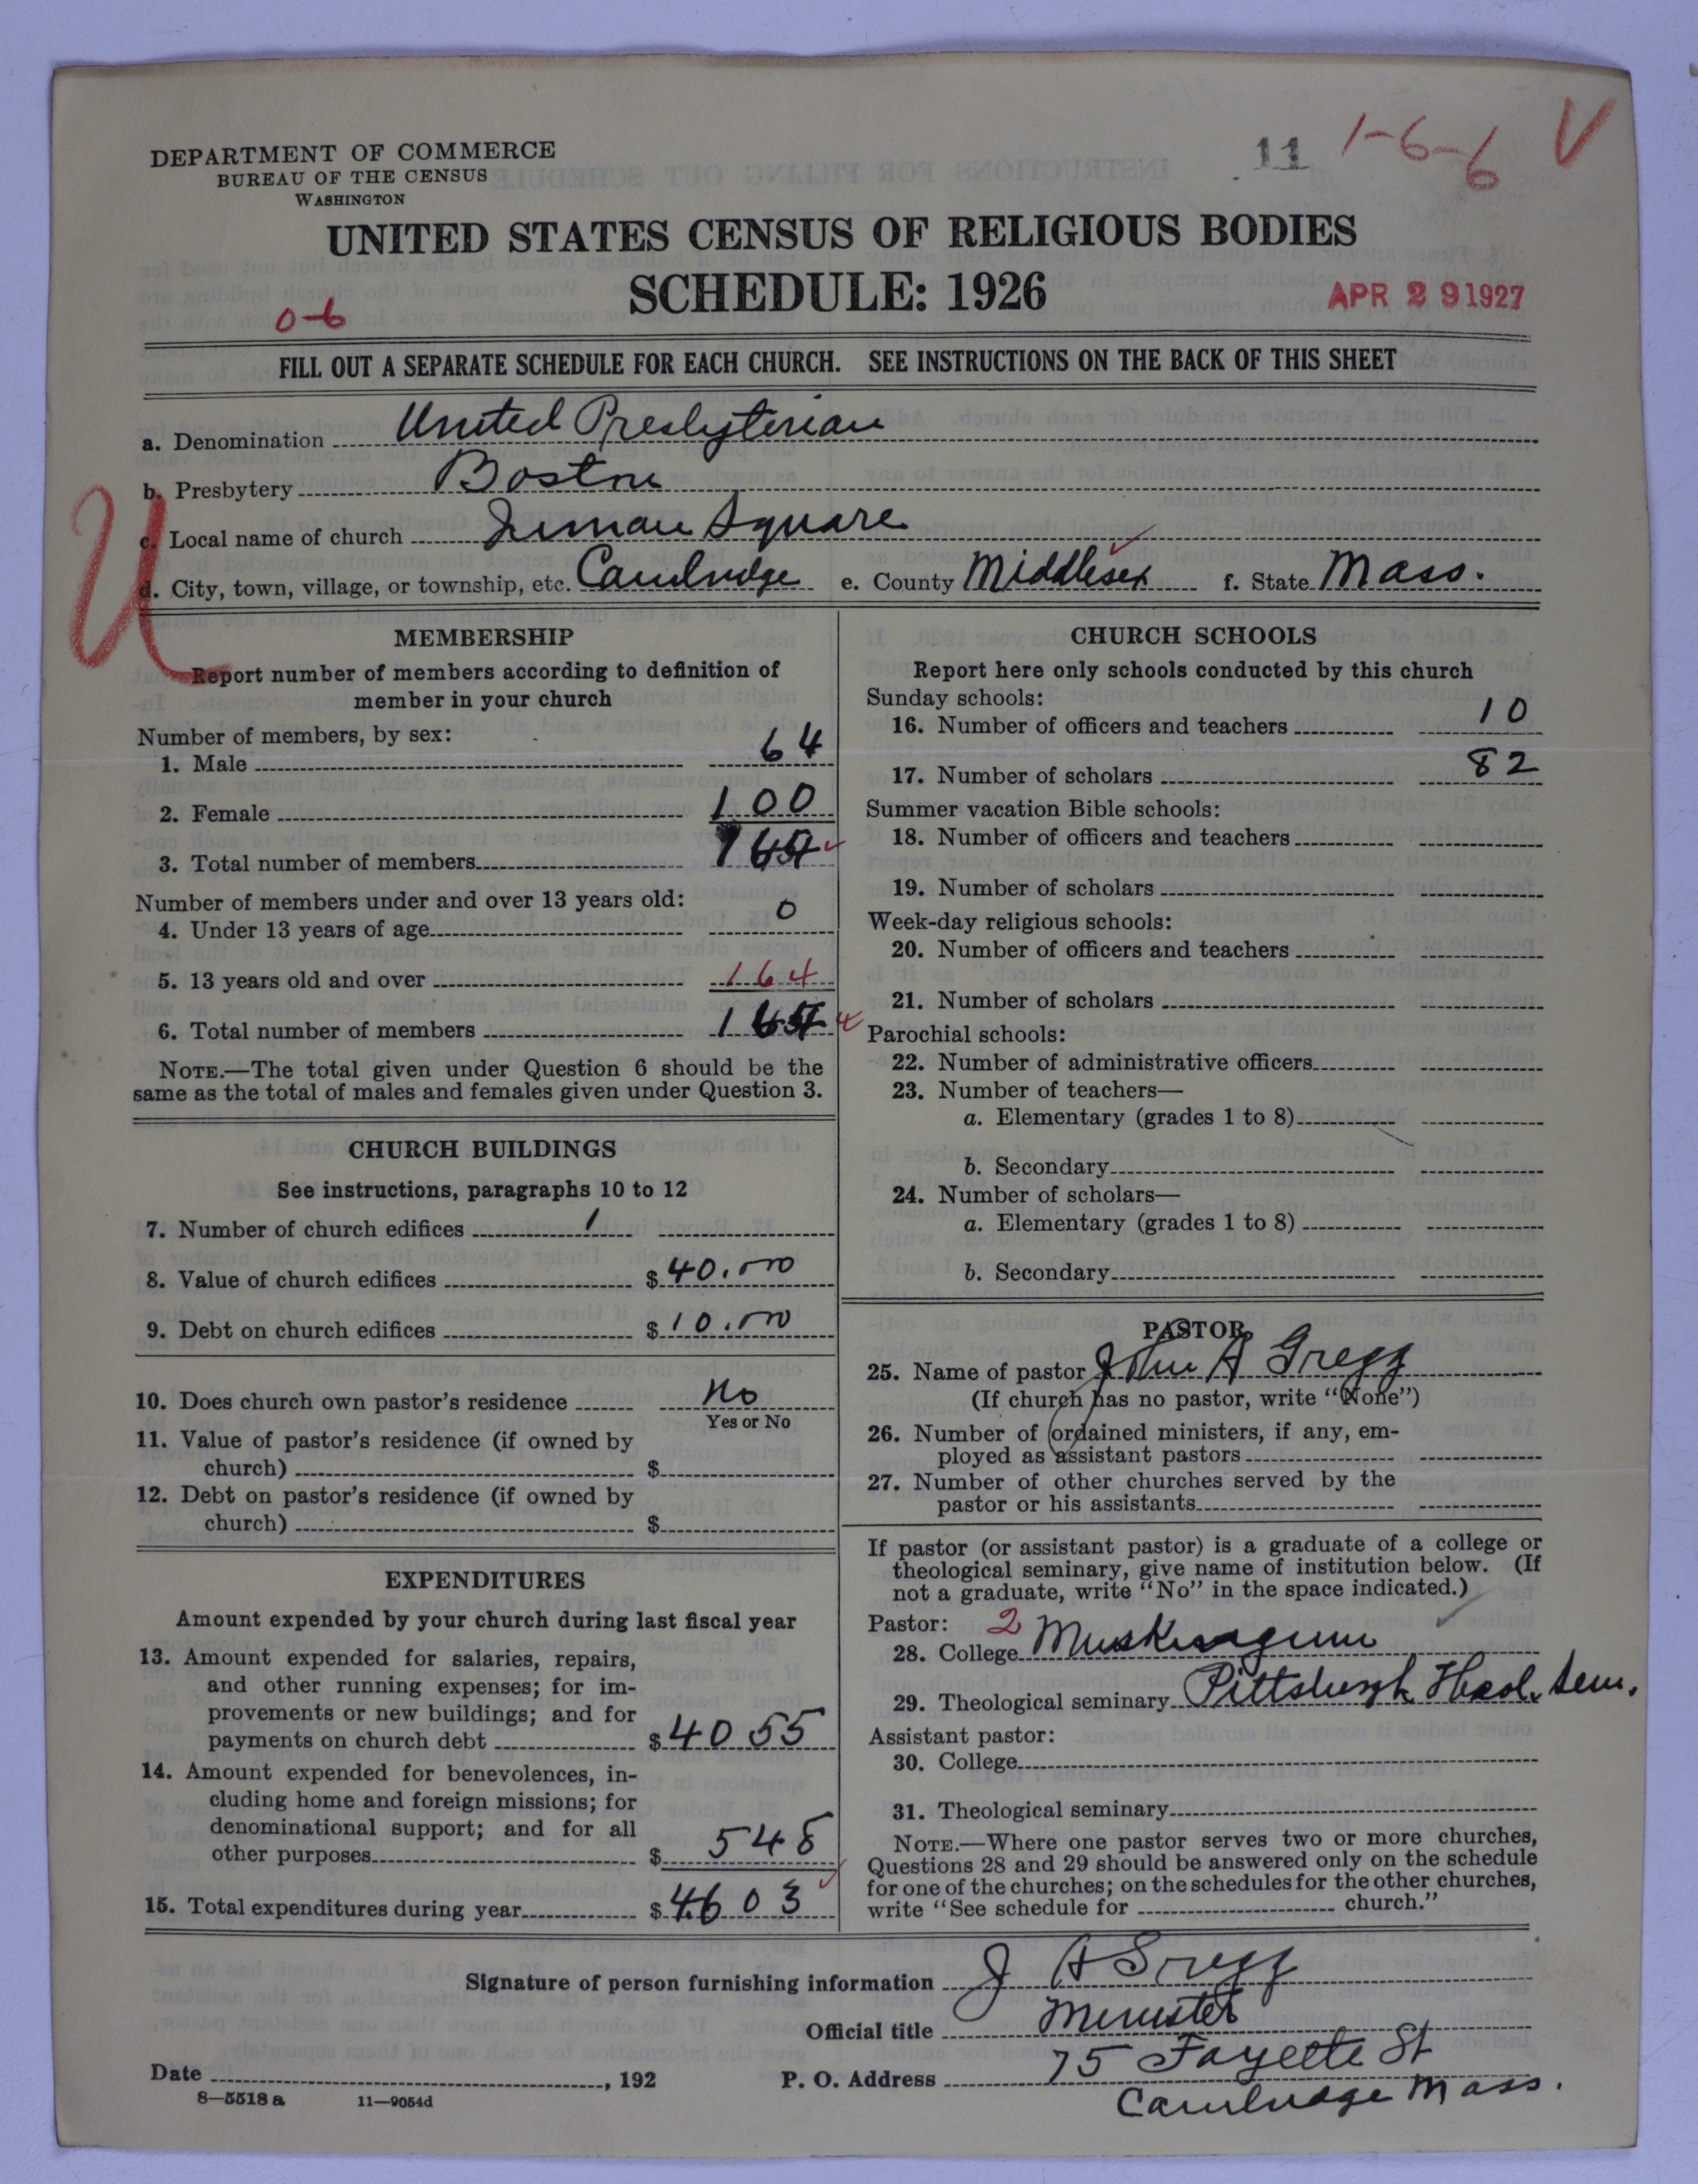 DEPARTMENT OF COMMERCE
BUREAU OF THE CENSUS
WASHINGTON
11 1-6-6 V
UNITED STATES CENSUS OF RELIGIOUS BODIES
SCHEDULE: 1926
APR 29 1927
0-6
FILL OUT A SEPARATE SCHEDULE FOR EACH CHURCH. SEE INSTRUCTIONS ON THE BACK OF THIS SHEET
a. Denomination United Presbyterian
b. Presbytery Boston
U
c. Local name of church Inman Square
d. City, town, village, or township, etc. Cambridge e. County Middlesex f. State Mass.
MEMBERSHIP
Report number of members according to definition of
member in your church
Number of members, by sex:
1. Male 64
2. Female 100
3. Total number of members 164
Number of members under and over 13 years old:
4. Under 13 years of age 0
5. 13 years old and over 164
6. Total number of members 164
NOTE.—The total given under Question 6 should be the
same as the total of males and females given under Question 3.
CHURCH BUILDINGS
See instructions, paragraphs 10 to 12
7. Number of church edifices 1
8. Value of church edifices $ 40,000
9. Debt on church edifices $ 10,000
10. Does church own pastor's residence No
Yes or No
11. Value of pastor's residence (if owned by
church) $
12. Debt on pastor's residence (if owned by
church) $
EXPENDITURES
Amount expended by your church during last fiscal year
13. Amount expended for salaries, repairs,
and other running expenses; for im-
provements or new buildings; and for
payments on church debt $ 4055
14. Amount expended for benevolences, in-
cluding home and foreign missions; for
denominational support; and for all
other purposes $ 548
15. Total expenditures during year $ 4603
CHURCH SCHOOLS
Report here only schools conducted by this church
Sunday schools:
16. Number of officers and teachers 10
17. Number of scholars 82
Summer vacation Bible schools:
18. Number of officers and teachers
19. Number of scholars
Week-day religious schools:
20. Number of officers and teachers
21. Number of scholars
Parochial schools:
22. Number of administrative officers
23. Number of teachers—
a. Elementary (grades 1 to 8)
b. Secondary
24. Number of scholars—
a. Elementary (grades 1 to 8)
b. Secondary
PASTOR
25. Name of pastor John A Gregg
(If church has no pastor, write "None")
26. Number of ordained ministers, if any, em-
ployed as assistant pastors
27. Number of other churches served by the
pastor or his assistants
If pastor (or assistant pastor) is a graduate of a college or
theological seminary, give name of institution below. (If
not a graduate, write "No" in the space indicated.)
Pastor: 2
28. College Muskingum
29. Theological seminary Pittsburgh Theol. Sem.
Assistant pastor:
30. College
31. Theological seminary
NOTE.—Where one pastor serves two or more churches,
Questions 28 and 29 should be answered only on the schedule
for one of the churches; on the schedules for the other churches,
write "See schedule for church."
Signature of person furnishing information J A Gregg
Official title Minister
Date , 192 P. O. Address 75 Fayette St
Cambridge Mass.
8—5518 a 11—9054d